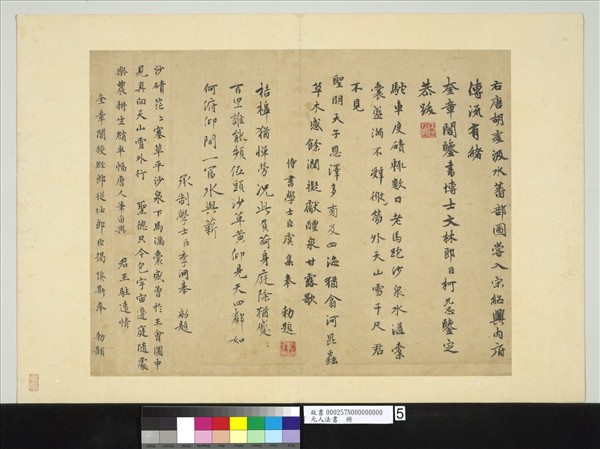 右唐胡虔汲水蕃部圖嘗入宋紹興內府
傳流有緒
奎章閣鑒書博士文林郎臣柯九思鑒定
恭跋
駝車度磧動數日老馬跑沙泉水溢橐
囊盛滿不辭
外天山雪千尺君
不見
聖明天子恩澤多南及四海猶翕河昆蟲
草木感餘潤擬獻醴泉甘露歌
侍書學士臣虞集奉 勅題
桔橰猶憚勞況此負荷身庭除猶
百里誰能頻低頭沙草黃仰見天四鄰如
何俯仰間一官水與薪
承制學士臣李泂奉 勅題
沙磧茫茫寒草平沙泉下馬滿囊盛曾於王會圖中
見真向天山雪外行 聖德只今包宇宙邊庭隨處
樂農耕生綃半幅唐人筆留與 君王駐遠情
奎章閣授經郎從仕郎臣揭傒斯奉 勅題
故書 000257N000000000
元人法書 冊
5